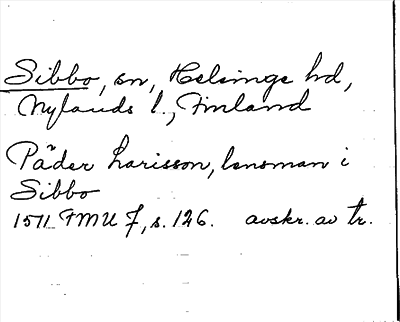 Sibbo, sn, Helsinge hd,
Nylands l., Finland
Päder Larisson, lensman i
Sibbo
1511 FMU 7, s. 126. avskr. av tr.